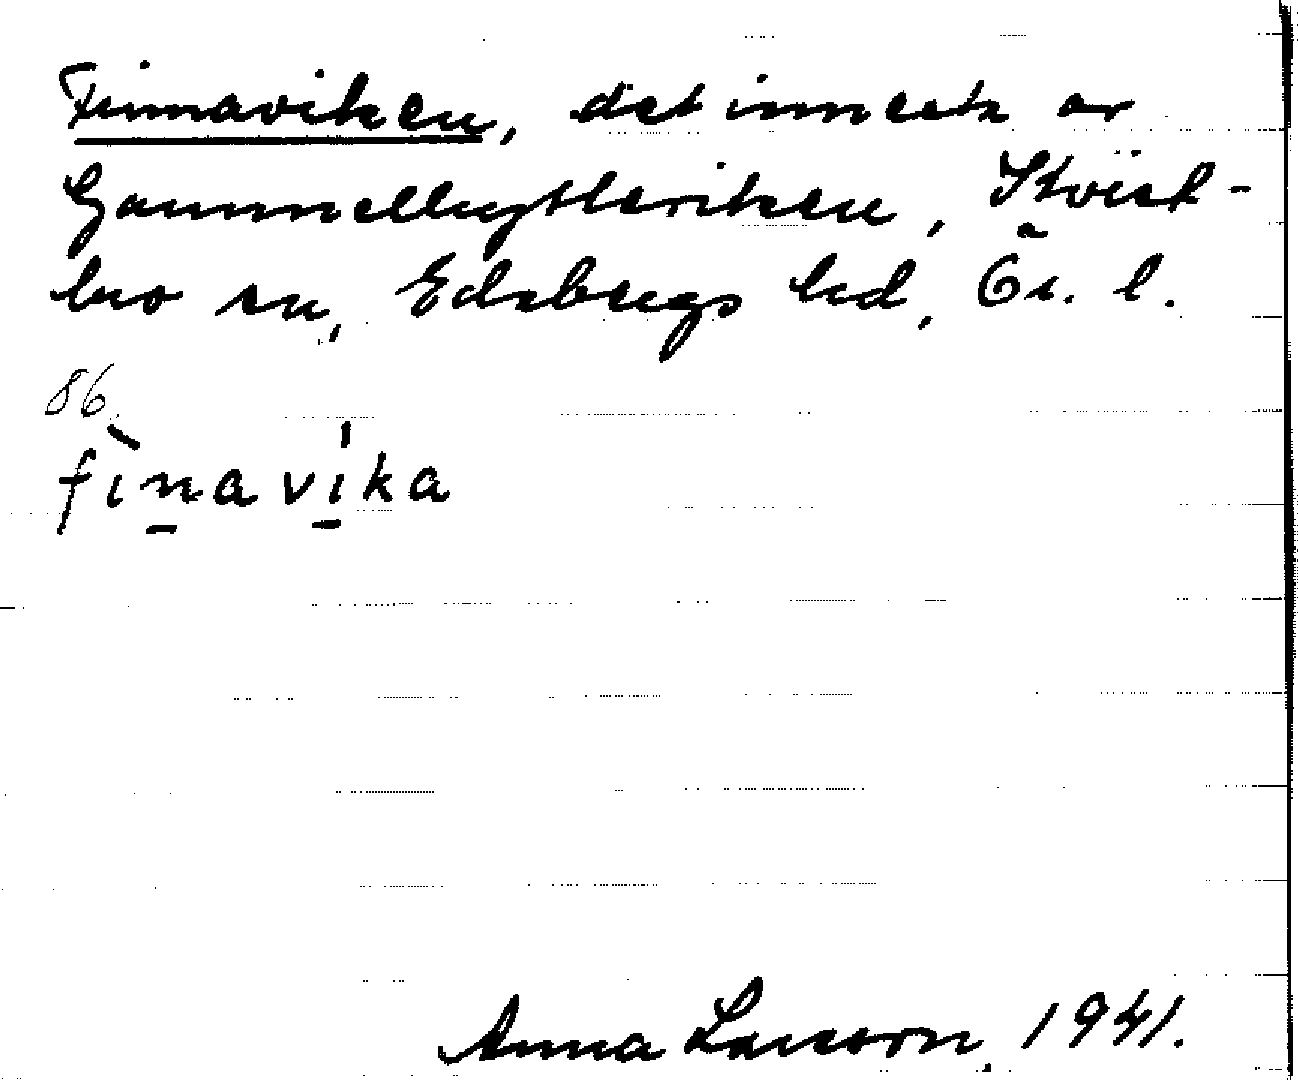 Finnaviken, det innersta av
Gammelhytteviken, Kvist-
bro sn, Edsbergs hd, Ör. l.
86
fìnavíka
Anna Larsson, 1941.